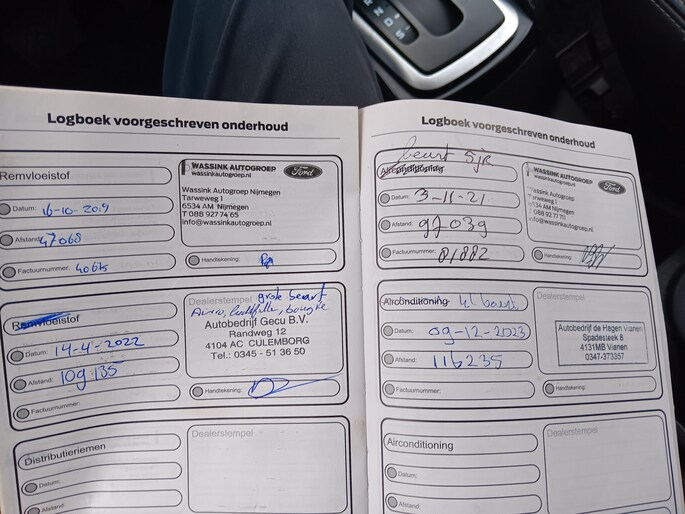 Logboek voorgeschreven onderhoud
Remvloeistof
Datum: 16-10-2019
Afstand: 47068
Factuurnummer: 40675
WASSINK AUTOGROEP
wassinkautogroep.nl
Ford
Wassink Autogroep Nijmegen
Tarweweg 1
6534 AM Nijmegen
T 088 927 74 65
info@wassinkautogroep.nl
Handtekening:
Remvloeistof
Datum: 14-4-2022
Afstand: 109135
Factuurnummer:
Dealerstempel grote beurt
Airco, luchtfilter, bougie
Autobedrijf Gecu B.V.
Randweg 12
4104 AC CULEMBORG
Tel.: 0345 - 51 36 50
Handtekening:
Distributieriemen
Datum:
Afstand:
Dealerstempel
Logboek voorgeschreven onderhoud
beurt 5jr
Airconditioning
Datum: 3-11-21
Afstand: 97039
Factuurnummer: 81882
WASSINK AUTOGROEP
wassinkautogroep.nl
Ford
Wassink Autogroep Nijmegen
Tarweweg 1
6534 AM Nijmegen
T 088 927 74 65
info@wassinkautogroep.nl
Handtekening:
Airconditioning kl beurt
Datum: 09-12-2023
Afstand: 116235
Factuurnummer:
Dealerstempel
Autobedrijf de Hagen Vianen
Spadesteek 8
4131MB Vianen
0347-373357
Handtekening:
Airconditioning
Datum:
Afstand:
Dealerstempel